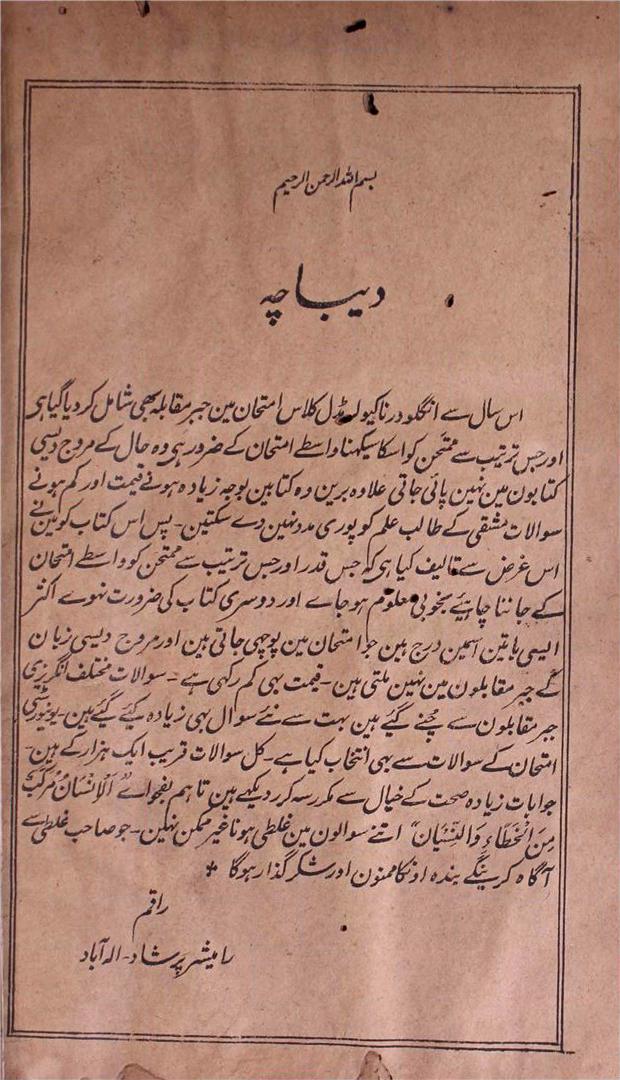 بسم اللہ الرحمن الرحیم
دیباچہ
اس سال سے انگلو ورناکیولر مڈل کلاس امتحان مین جبر مقابلہ بھی شامل کر دیا گیا ہی
اور جس ترتیب سے ممتحن کو اسکا سیکھنا واسطے امتحان کے ضرور ہی وہ حال کے مروج دیسی
کتابون مین نہین پائی جاتی علاوہ برین وہ کتابین بوجہ زیادہ ہونے قیمت اور کم ہونے
سوالات مشقی کے طالب علم کو پوری مدد نہین دے سکتین۔ پس اس کتاب کو مین نے
اس غرض سے تالیف کیا ہی کہ جس قدر اور جس ترتیب سے ممتحن کو واسطے امتحان
کے جاننا چاہئیے بخوبی معلوم ہو جاے اور دوسری کتاب کی ضرورت نہوے اکثر
ایسی باتین اسمین درج ہین جو امتحان مین پوچھی جاتی ہین اور مروج دیسی زبان
کے جبر مقابلون مین نہین ملتی ہین۔ قیمت بہی کم رکہی ہے۔ سوالات مختلف انگریزی
جبر مقابلون سے چُنے گیے ہین بہت سے نئے سوال بہی زیادہ کیے گیے ہین۔ یونیورسٹی
امتحان کے سوالات سے بہی انتخاب کیا ہے۔ کل سوالات قریب ایک ہزار کے ہین۔
جوابات زیادہ صحت کے خیال سے مکرر سہ کرر دیکہے ہین تاہم بفحواے "اَلْاِنْسَانُ مُرَکَّبٌ
مِنَ الْخَطَاءِ وَالنِّسْیَان" اتنے سوالون مین غلطی ہونا غیر ممکن نہین۔ جو صاحب غلطی سے
آگاہ کرینگے بندہ اونکا ممنون اور شکر گذار ہوگا *
راقم
رامیشر پرشاد۔ الہ آباد